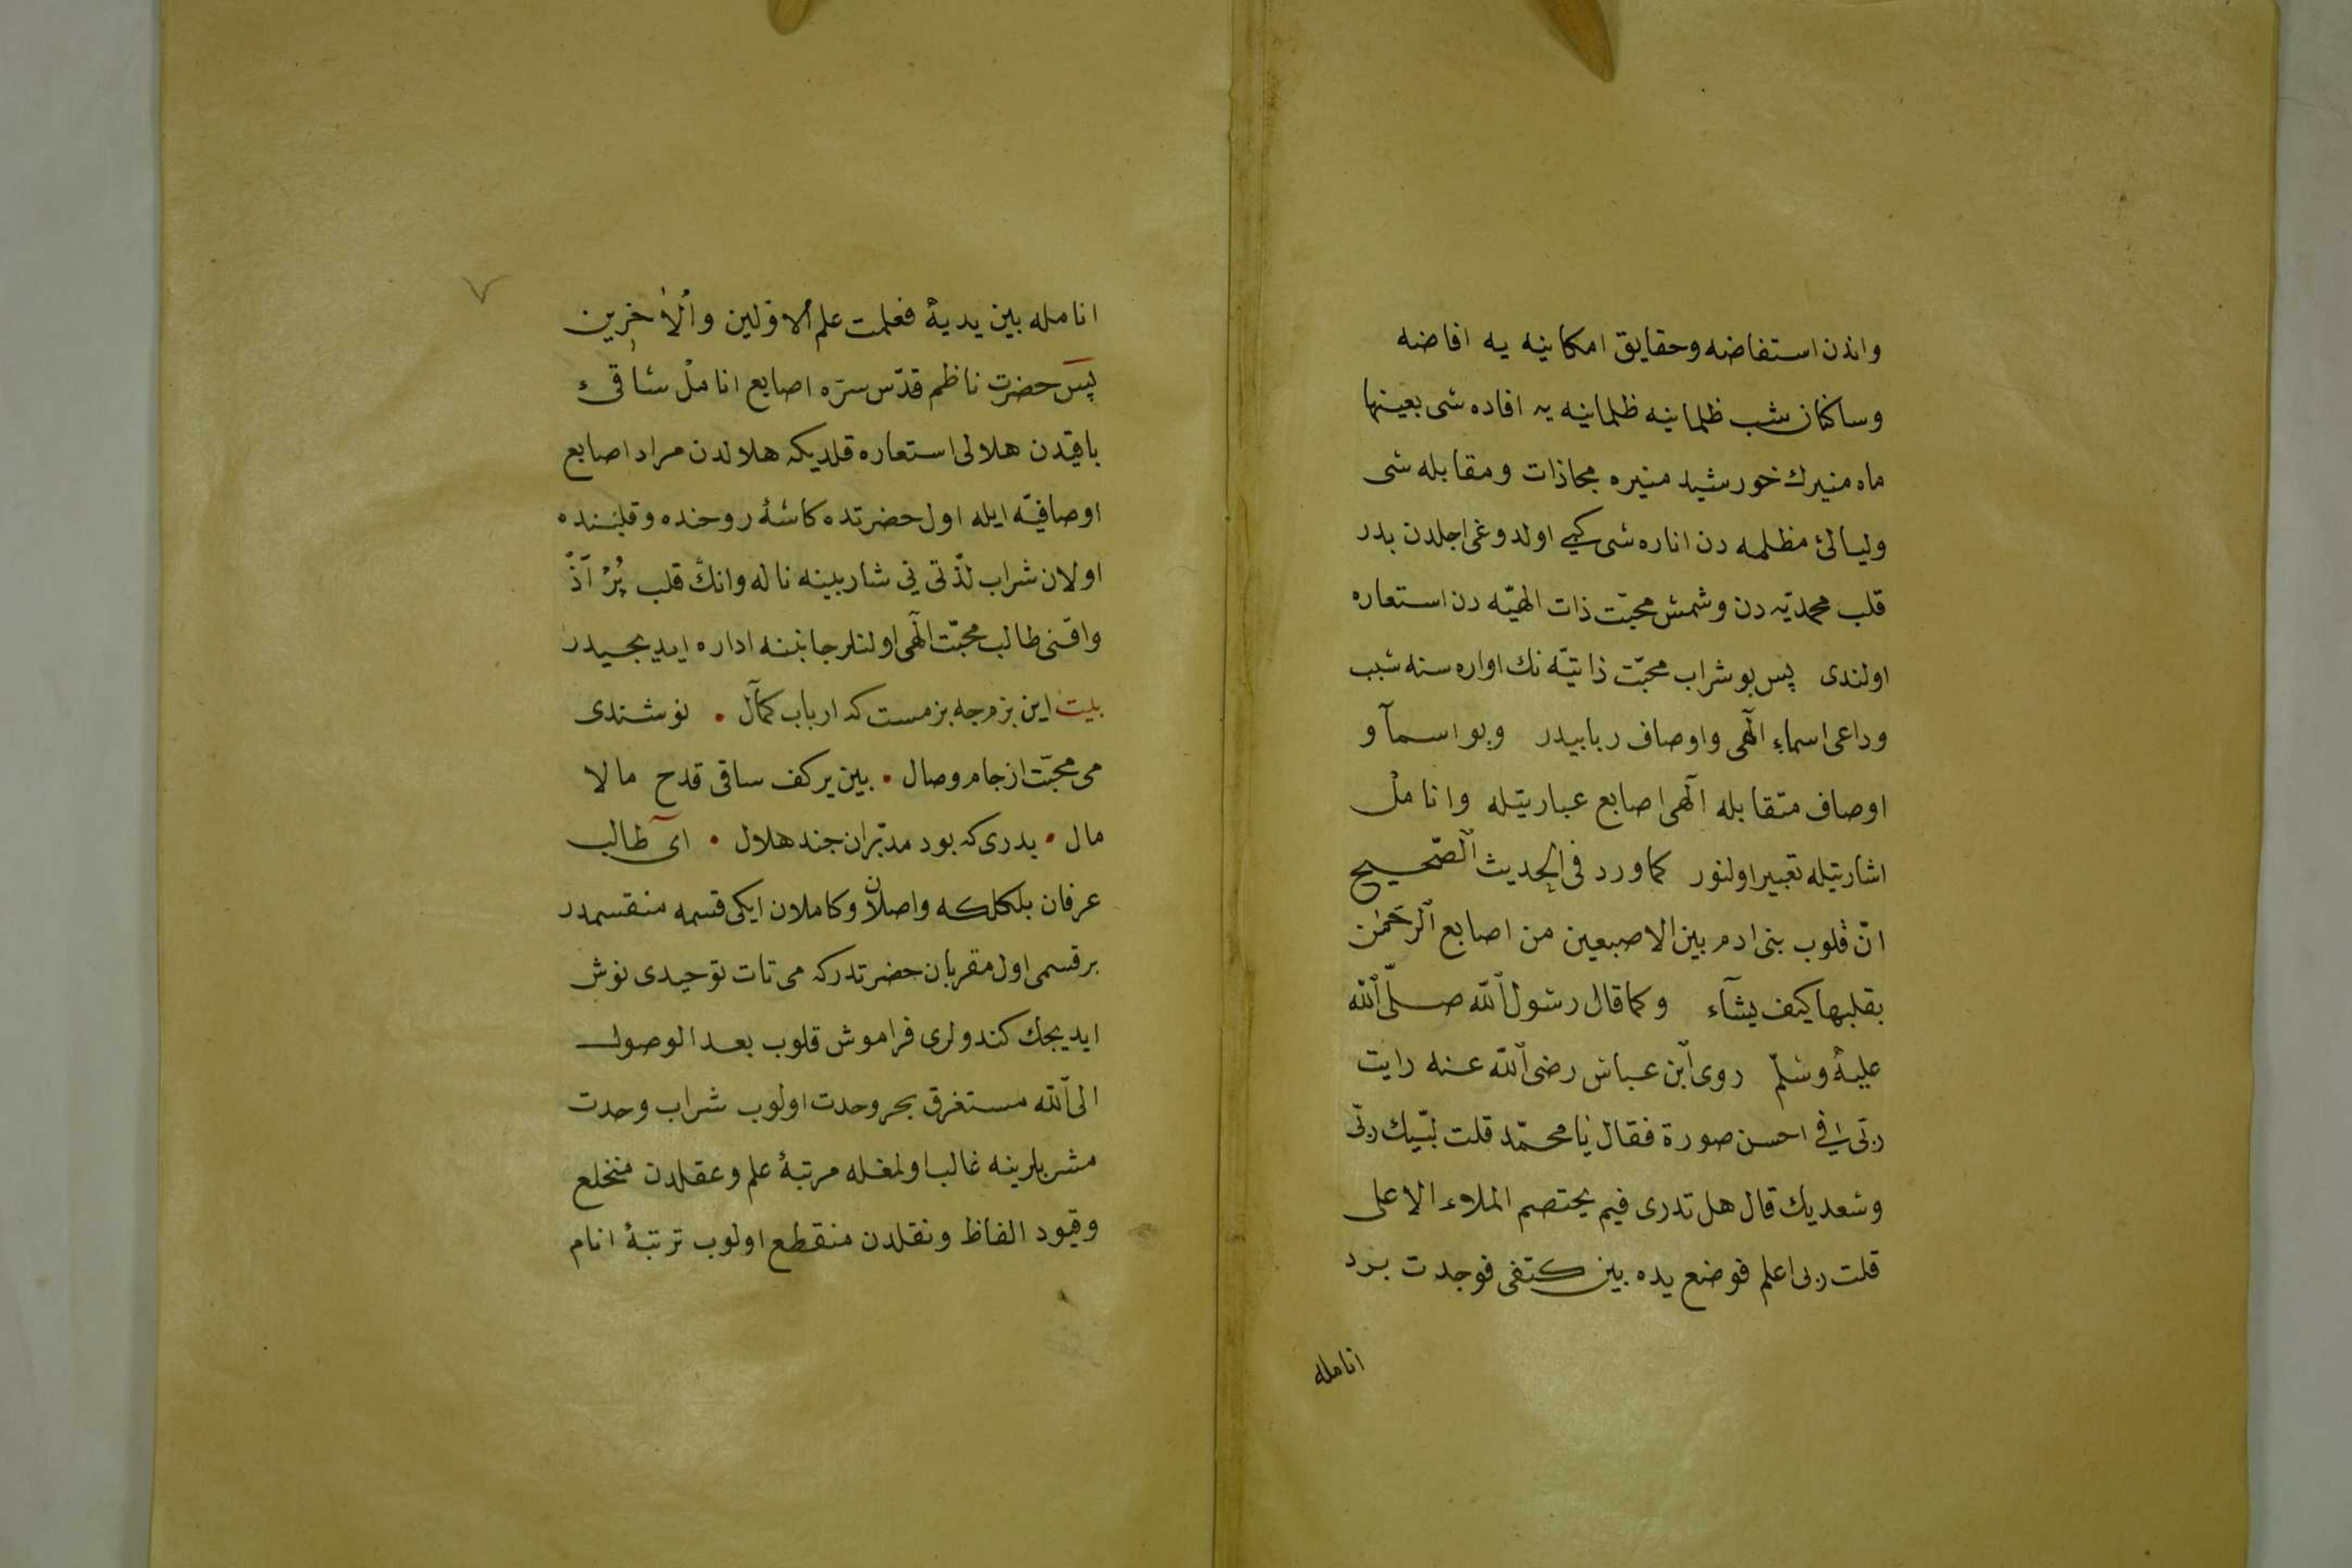 واندن استفاضه وحقايق امكانيه يه افاضه
وساكنان شب ظلمانيه ظلمانيه يه افاده شى بعينها
ماه منيرك خورشيد منيره محاذات ومقابله شى
وليالئ مظلمه دن اناره شى كبى اولدوغى اجلدن بدر
قلب محمديّه دن وشمش محبّت ذات الهيّه دن استعاره
اولندى پس بو شراب محبّت ذاتيّه نك اواره سنه سبب
وداعى اسماء الٓهى واوصاف ربابيدر وبو اسمآ و
اوصاف متقابله الٓهى اصابع عباريتله وانامل
اشاريتله تعبير اولنور كما ورد فى الحديث الصّحيح
انّ قلوب بنى ادم بين الاصبعين من اصابع الرّحمٰن
يقلبها كيف يشآء وكما قال رسول الله صلّى الله
عليه وسلّم روى ابن عباس رضى الله عنه رايت
ربّى فى احسن صورة فقال يا محمّد قلت لبّيك ربّى
وسعديك قال هل تدرى فيم يختصم الملاء الاعلى
قلت ربى اعلم فوضع يده بين كتفى فوجدت برد
انامله
٧
انامله بين يديه فعلمت علم الاوّلين والاٰخرين
پس حضرت ناظم قدّس سرّه اصابع انامل ساقئ
باقيدن هلالى استعاره قلديكه هلالدن مراد اصابع
اوصافيّه ايله اول حضرتده كاسهٔ روحنده وقلبنده
اولان شراب لذّتى نى شاربينه ناله وانك قلب پُر آذ
واقنى طالب محبّت الٓهى اولنلر جانبنه اداره ايديجيدر
بيت اين بزم چه بزمست كه ارباب كمال • نوشندى
مى محبّت از جام وصال • بين بر كف ساقى قدح مالا
مال • بدرى كه بود مدبّران چند هلال • آى طالب
عرفان بلكلكه واصلان وكاملان ايكى قسمه منقسمدر
بر قسمى اول مقربان حضرتدركه مى تات توحيدى نوش
ايديجك كندولرى فراموش قلوب بعد الوصول
الى الله مستغرق بحر وحدت اولوب شراب وحدت
مشربلرينه غالب اولمغله مرتبهٔ علم وعقلدن منخلع
وقيود الفاظ ونقلدن منقطع اولوب ترتبهٔ انام